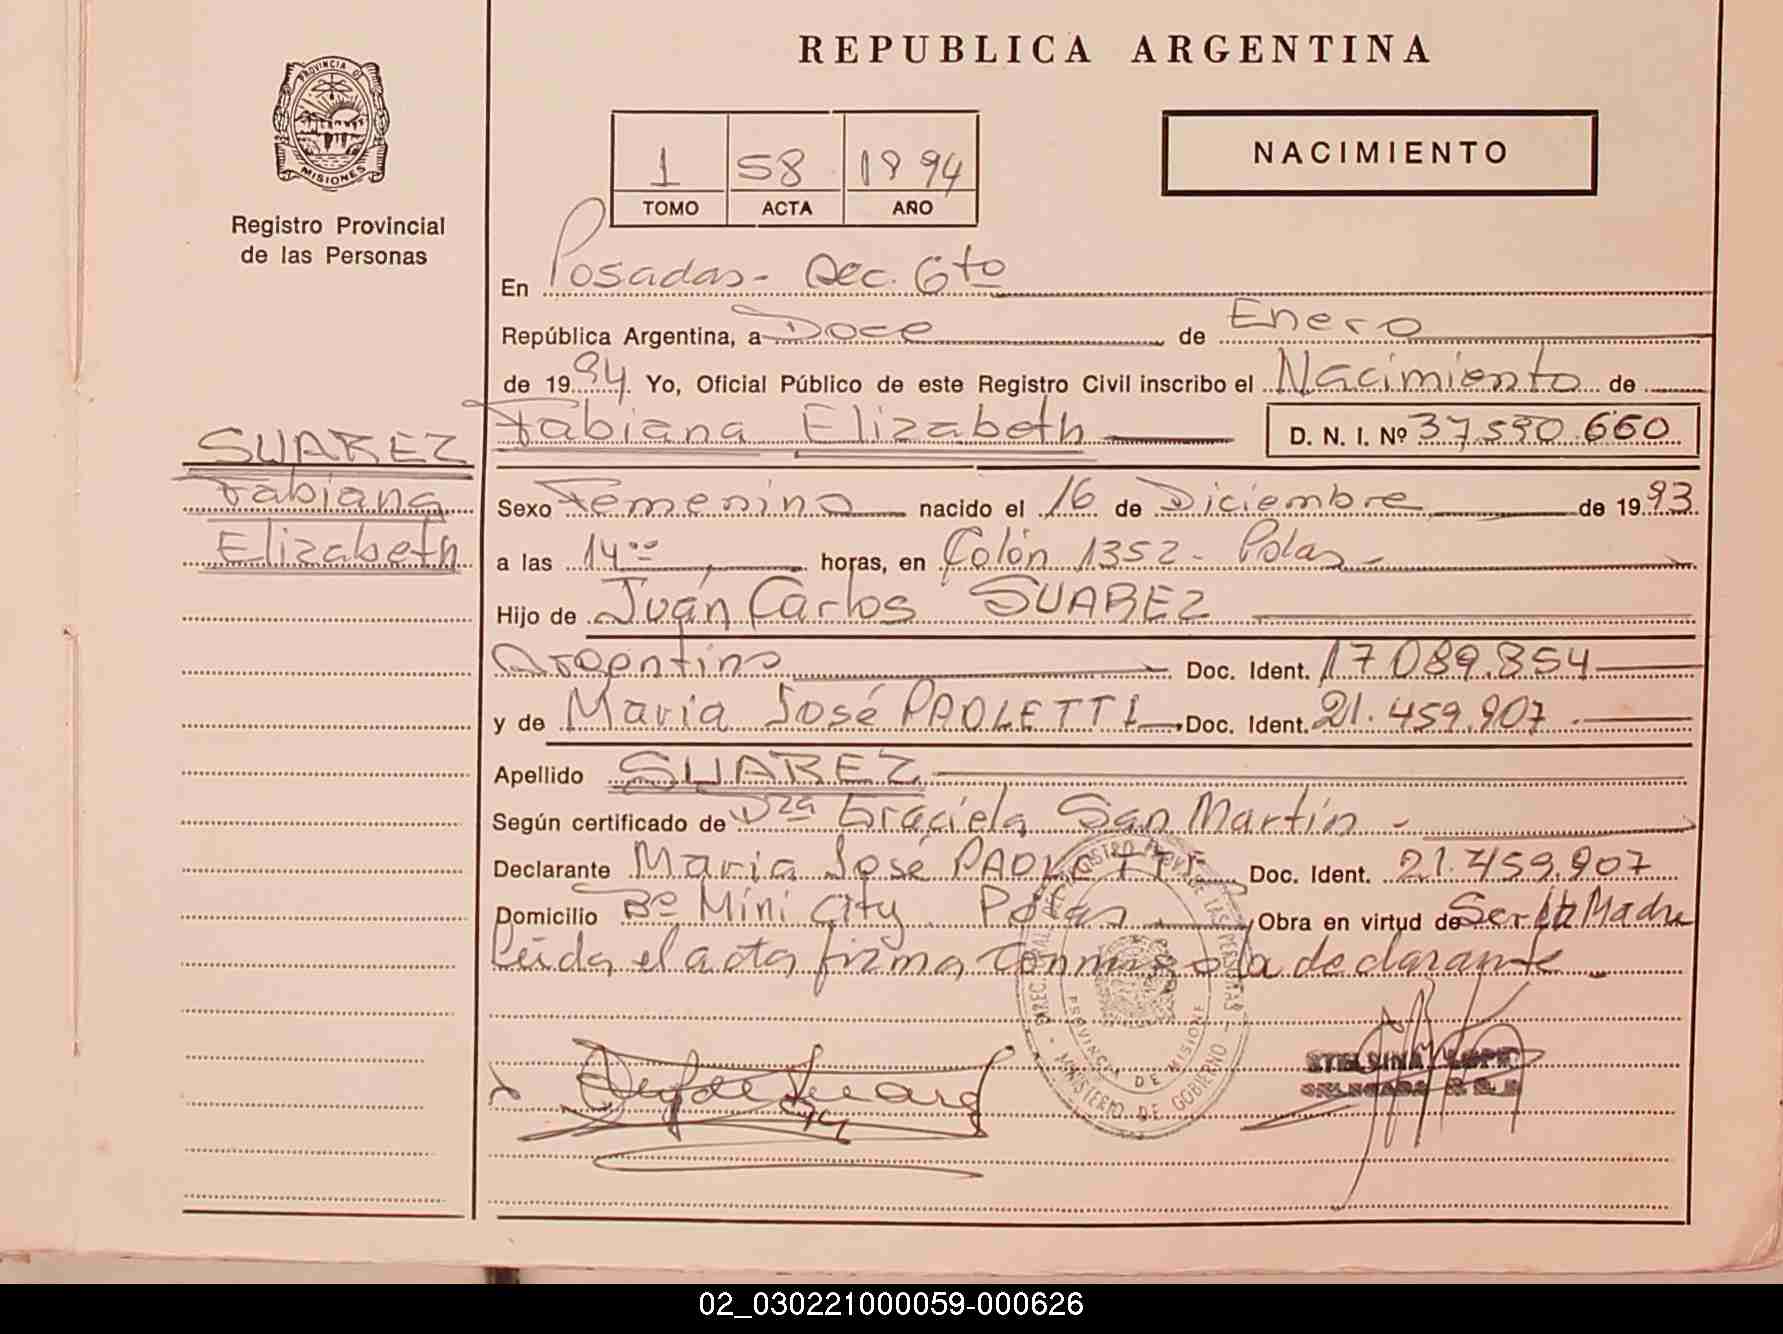 REPUBLICA ARGENTINA
PROVINCIA DE
MISIONES
Registro Provincial
de las Personas
1 58 1994
TOMO ACTA AÑO
NACIMIENTO
En Posadas - Sec. 6to
República Argentina, a Doce de Enero
de 1994 Yo, Oficial Público de este Registro Civil inscribo el Nacimiento de
Fabiana Elizabeth D. N. I. Nº 37.530.660
SUAREZ
Fabiana
Elizabeth
Sexo Femenino nacido el 16 de Diciembre de 1993
a las 14 horas, en Colón 1352 - Pdas -
Hijo de Juan Carlos SUAREZ
Argentino Doc. Ident. 17.089.854
y de María José PAOLETTI Doc. Ident. 21.459.907
Apellido SUAREZ
Según certificado de Dra Graciela San Martín -
Declarante María José PAOLETTI Doc. Ident. 21.459.907
Domicilio Bº Mini City Pdas Obra en virtud de Ser la Madre
Leída el acta firma conmigo la declarante -
PROVINCIA DE MISIONES
MINISTERIO DE GOBIERNO
02_030221000059-000626